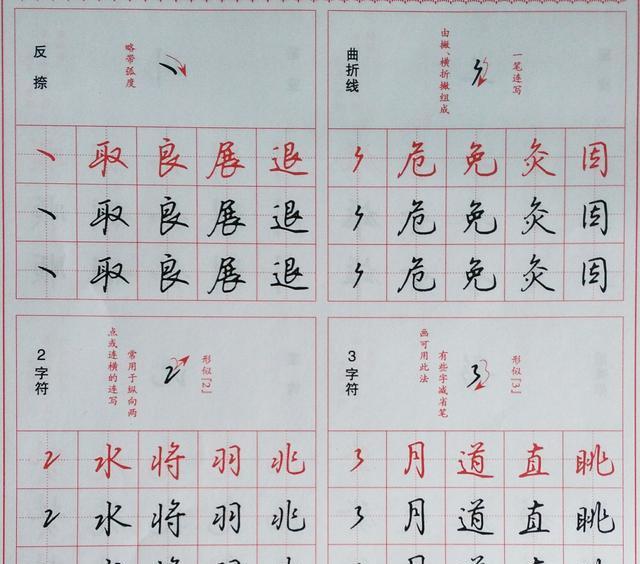 反捺
略带弧度
取 良 展 退
取 良 展 退
取 良 展 退
曲折线
一笔连写
由撇、横折撇组成
危 免 灸 因
危 免 灸 因
危 免 灸 因
2字符
形似『2』
常用于纵向两
点或连横的连写
2 水 将 羽 兆
2 水 将 羽 兆
3字符
形似『3』
有些字减省笔
画可用此法
3 月 道 直 眺
3 月 道 直 眺